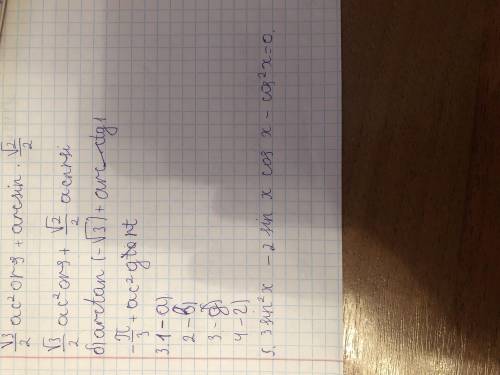 √3/2 ac²org + arcsin · √2/2
√3/2 ac²org + √2/2 acnrsi
б) arctan (-√3) + arc ctg1
-π/3 + ac²gtart
3. 1 - a)
2 - в)
3 - б)
4 - г)
5. 3 sin²x - 2 sin x cos x - cos²x = 0.